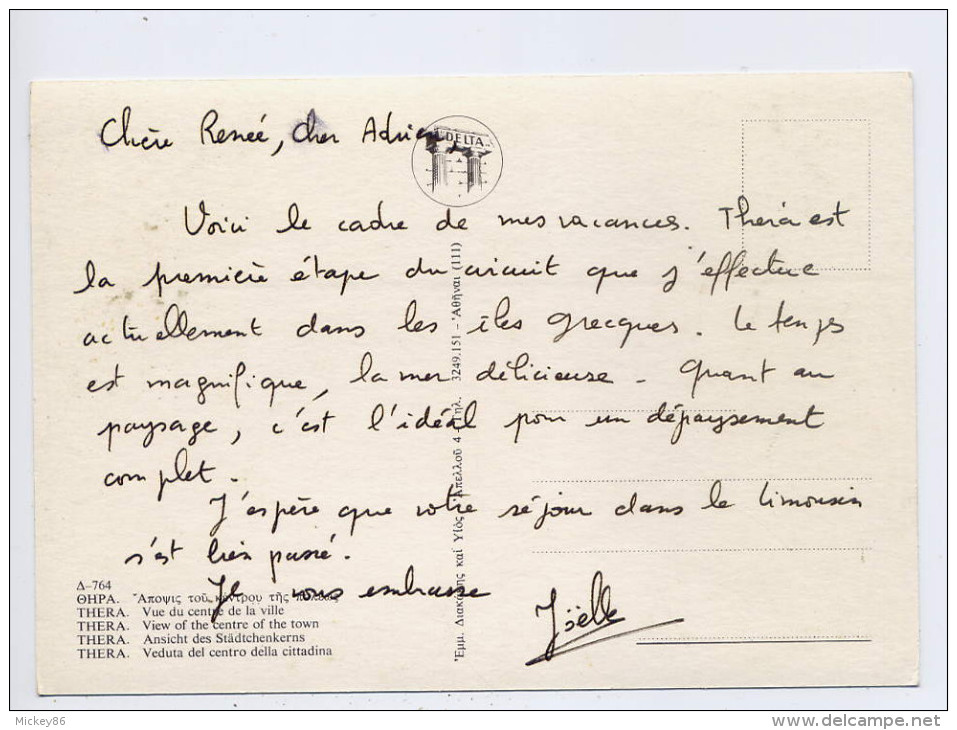 Chère Renée, cher Adrien,
DELTA
Voici le cadre de mes vacances. Théra est
la première étape du circuit que j'effectue
actuellement dans les îles grecques. Le temps
est magnifique, la mer délicieuse - Quant au
paysage, c'est l'idéal pour un dépaysement
complet.
J'espère que votre séjour dans le Limousin
s'est bien passé.
Je vous embrasse
Joëlle
Δ-764
ΘΗΡΑ. Ἄποψις τοῦ κέντρου τῆς πόλεως
THERA. Vue du centre de la ville
THERA. View of the centre of the town
THERA. Ansicht des Städtchenkerns
THERA. Veduta del centro della cittadina
Ἐμμ. Διακάκης καί Υἱός Ἀπελλοῦ 4 - Τηλ. 3249.151 - Ἀθῆναι (111)
Mickey86
www.delcampe.net